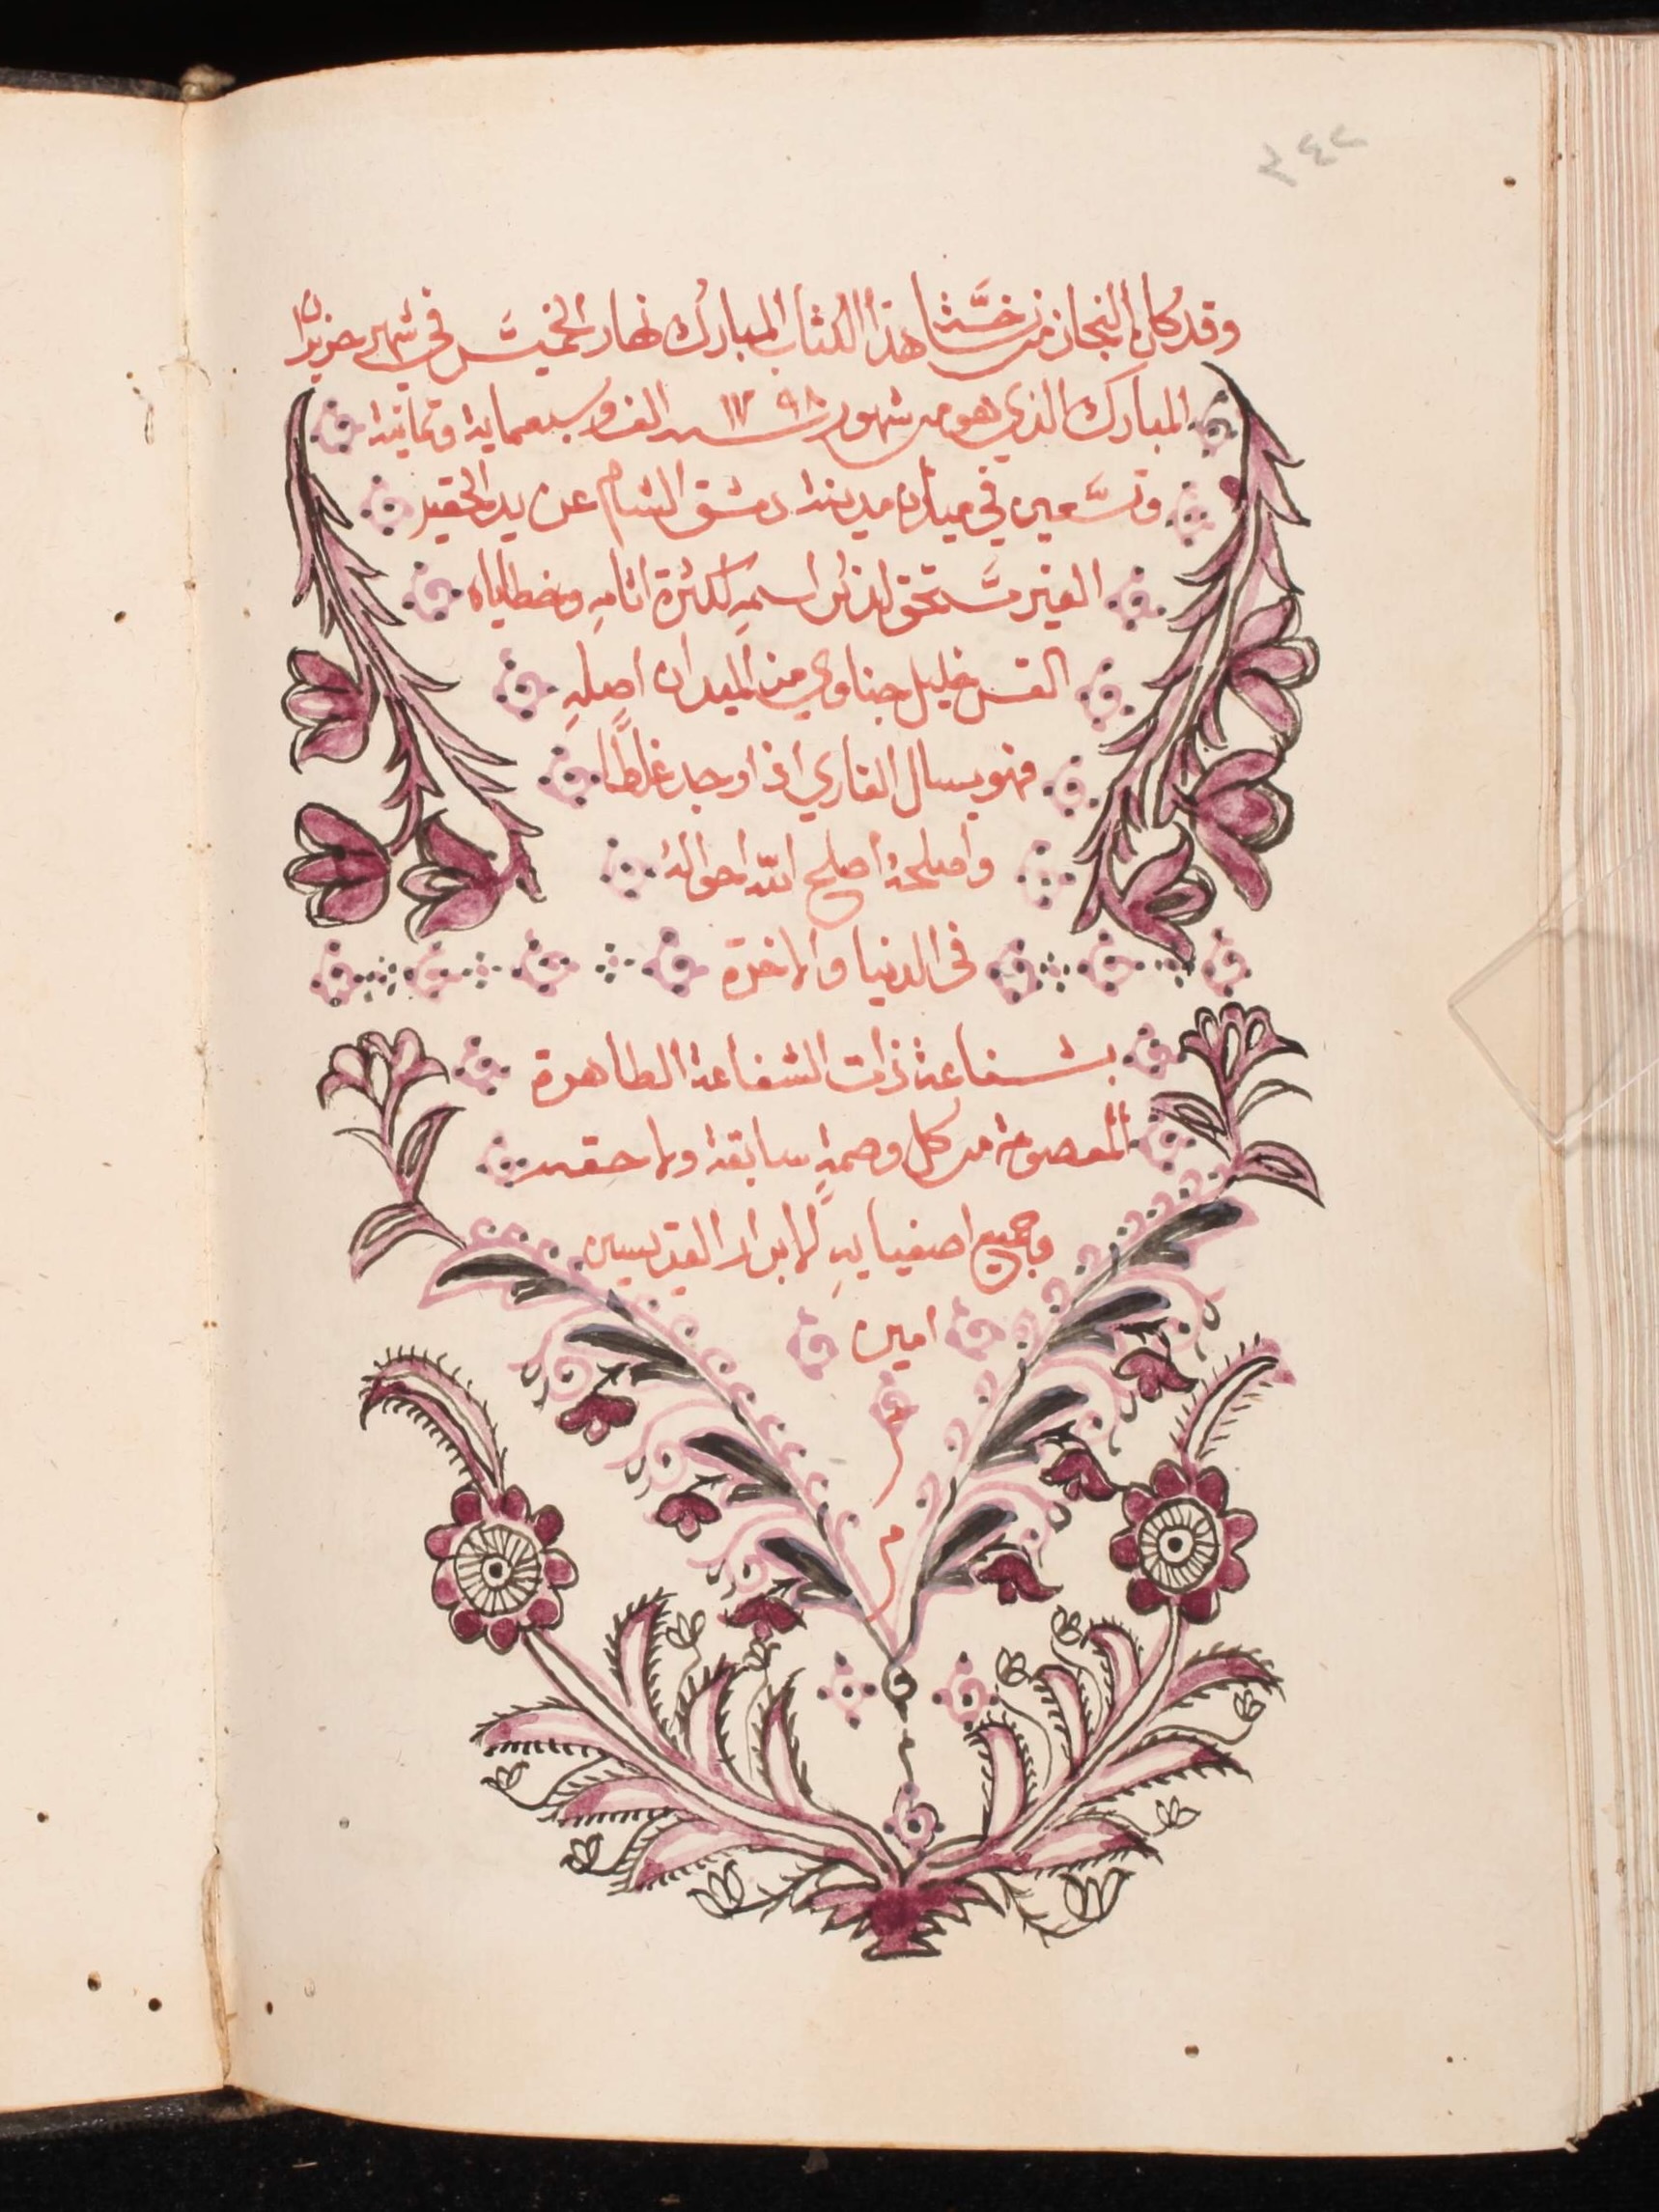 ٢٤٢
وقد كان النجاز من نساخة هذا الكتاب المبارك نهار الخميس في شهر حزيران
المبارك الذي هو من شهور سنة ١٧٩٨ الف وسبعماية وثمانية
وتسعين في ميدان مدينة دمشق الشام عن يد الحقير
الغير مستحق لذكر اسمهِ لكثرة اثامهِ وخطاياه
القس خليل جناوي من الميدان اصلهِ
فهو يسال القاري اذا وجد غلطًا
واصلحهُ اصلح الله احوالهُ
في الدنيا والاخرة
بشفاعة ذات الشفاعة الطاهرة
المعصومة من كل وصمةٍ سابقة ولاحقة
وجميع اصفيايهِ الابرار القديسين
امين